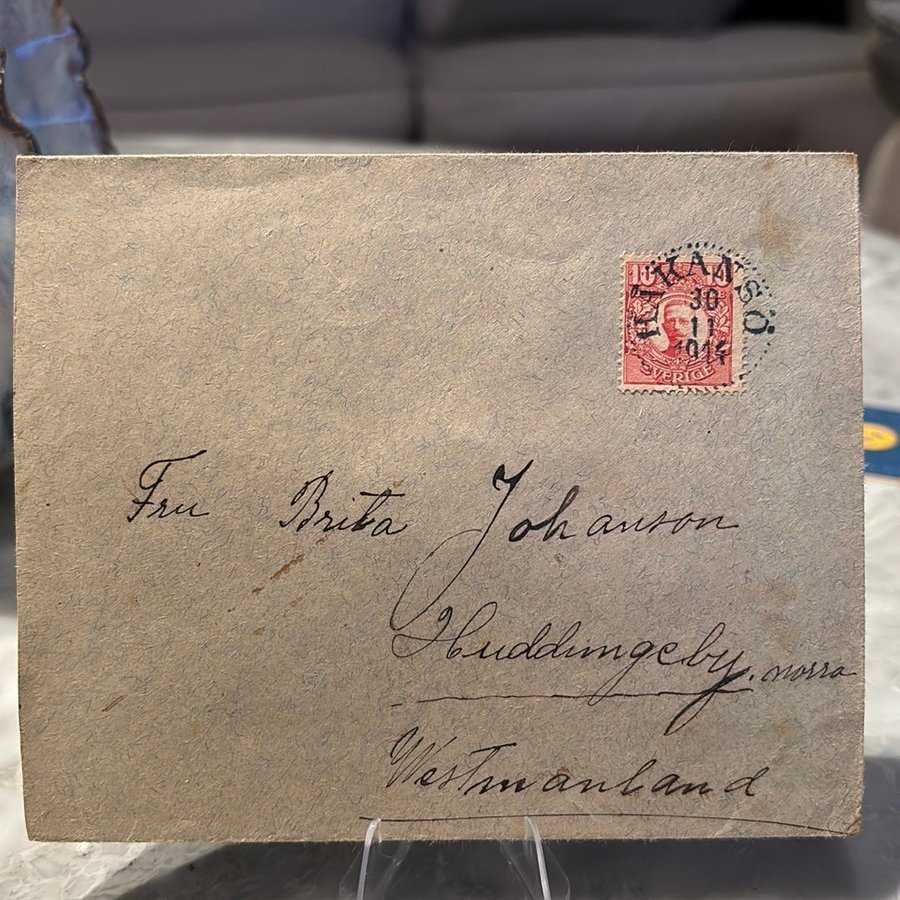 10 10
HÅKANSÖ
30
11
1914
SVERIGE
Fru Brita Johanson
Huddungeby. norra
Westmanland